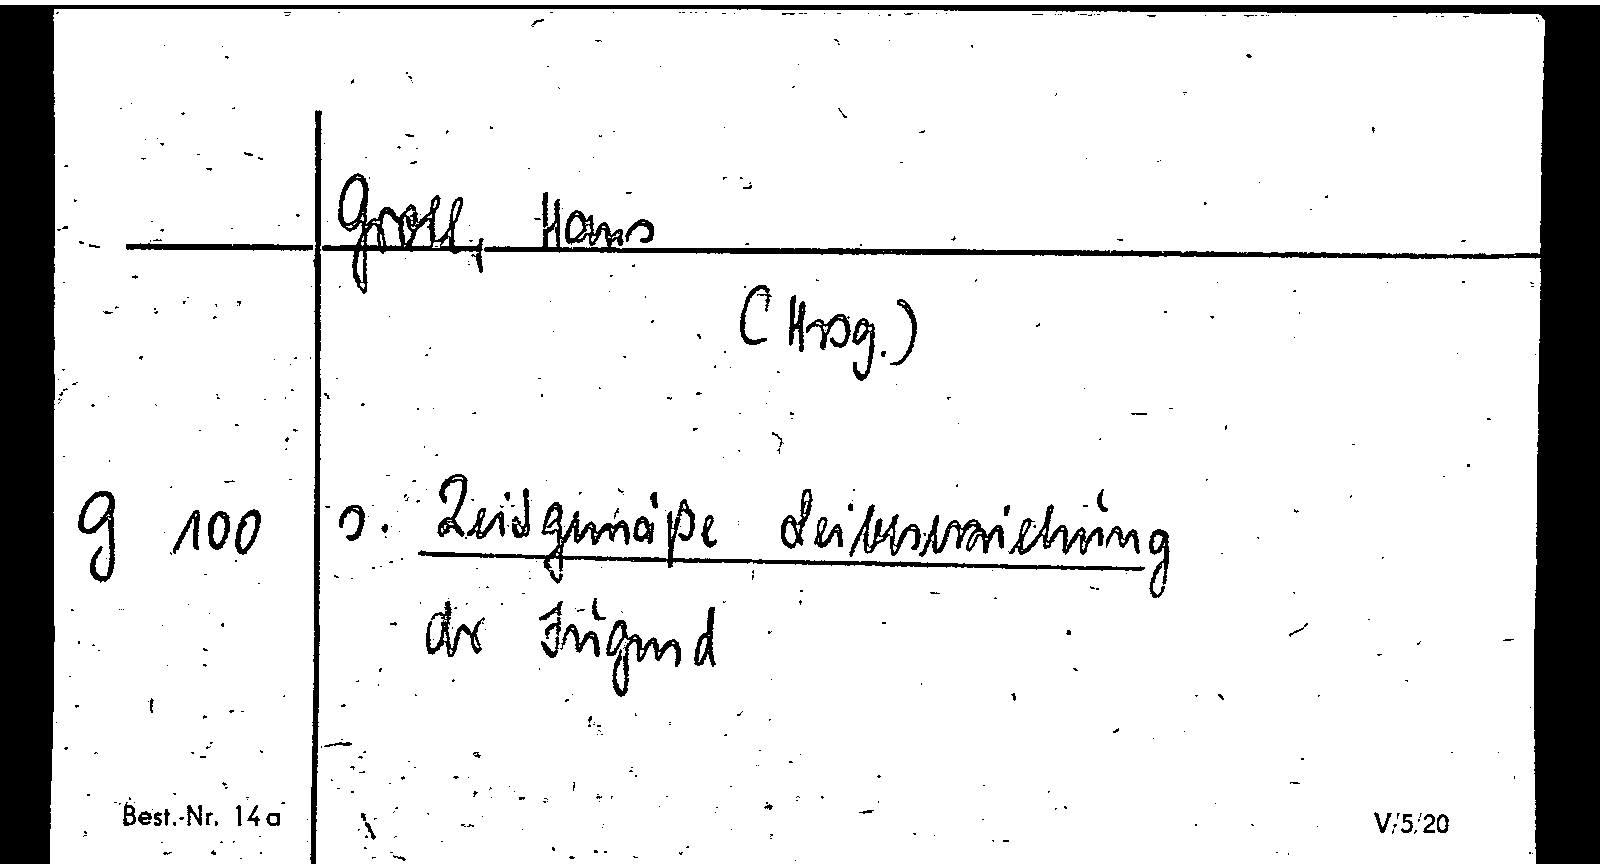 Groll, Hans
(Hrsg.)
g 100 s. Zeitgemäße Leibeserziehung
der Jugend
Best.-Nr. 14a V/5/20